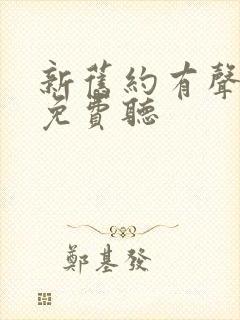 新舊約有聲
免費聽
鄭基發